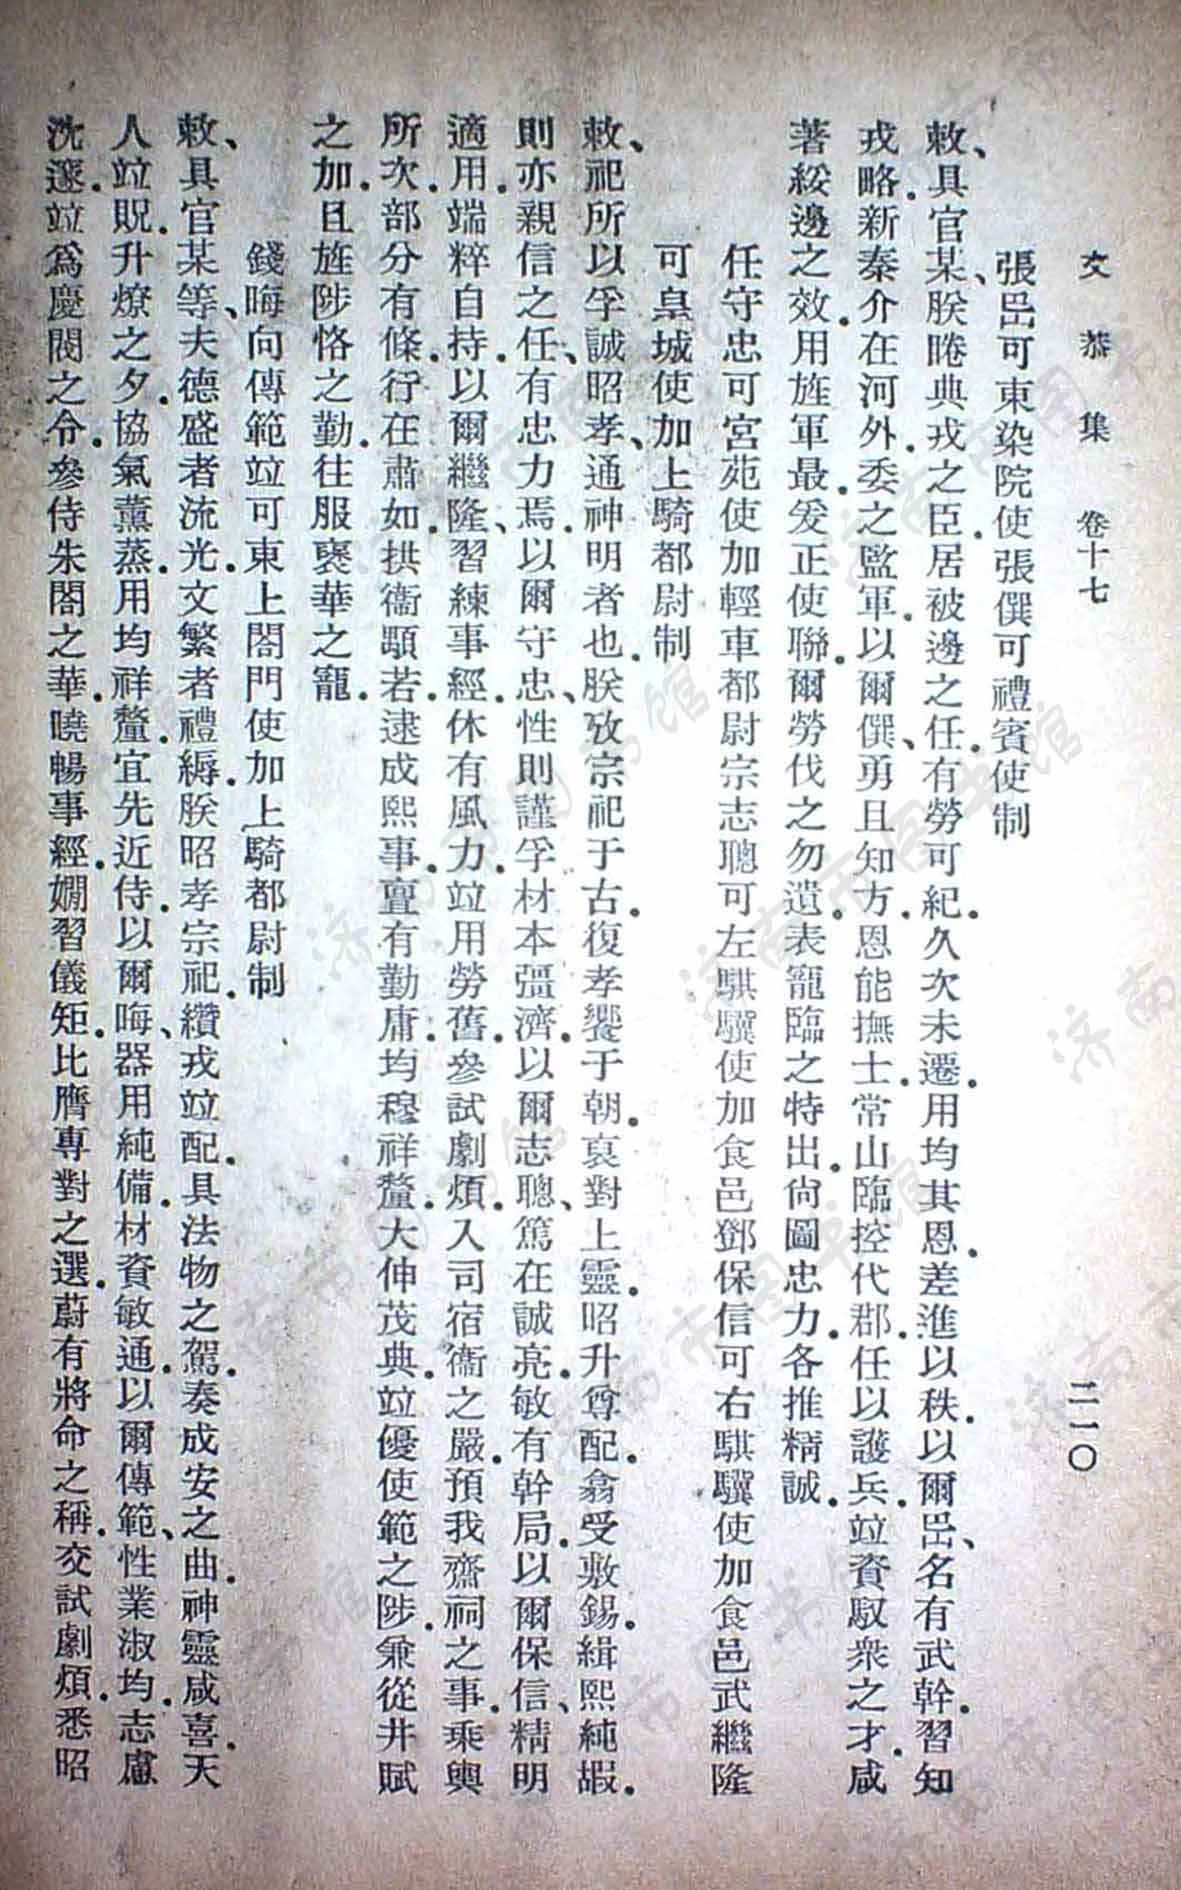 文恭集 卷十七 二一〇
張嵒可東染院使張僎可禮賓使制
敕、具官某、朕睠典戎之臣、居被邊之任、有勞可紀、久次未遷、用均其恩、差進以秩、以爾嵒、名有武幹、習知
戎略、新秦介在河外、委之監軍、以爾僎、勇且知方、恩能撫士、常山臨控代郡、任以護兵、竝資馭衆之才、咸
著綏邊之效、用旌軍最、爰正使聯、爾勞伐之勿遺、表寵臨之特出、尙圖忠力、各推精誠、
任守忠可宮苑使加輕車都尉宗志聰可左騏驥使加食邑鄧保信可右騏驥使加食邑武繼隆
可皇城使加上騎都尉制
敕、祀所以孚誠昭孝、通神明者也、朕攷宗祀于古、復孝饗于朝、裒對上靈、昭升尊配、翕受敷錫、緝熙純嘏、
則亦親信之任、有忠力焉、以爾守忠、性則謹孚、材本彊濟、以爾志聰、篤在誠亮、敏有幹局、以爾保信、精明
適用、端粹自持、以爾繼隆、習練事經、休有風力、竝用勞舊、參試劇煩、入司宿衞之嚴、預我齋祠之事、乘輿
所次、部分有條、行在肅如、拱衞顒若、逮成熙事、亶有勤庸、均穆祥釐、大伸茂典、竝優使範之陟、兼從井賦
之加、且旌陟恪之勤、往服褒華之寵、
錢晦向傳範竝可東上閤門使加上騎都尉制
敕、具官某等、夫德盛者流光、文繁者禮縟、朕昭孝宗祀、纘戎竝配、具法物之駕、奏成安之曲、神靈咸喜、天
人竝貺、升燎之夕、協氣薰蒸、用均祥釐、宜先近侍、以爾晦、器用純備、材資敏通、以爾傳範、性業淑均、志慮
沈邃、竝爲慶閥之令、參侍朱閤之華、曉暢事經、嫺習儀矩、比膺專對之選、蔚有將命之稱、交試劇煩、悉昭